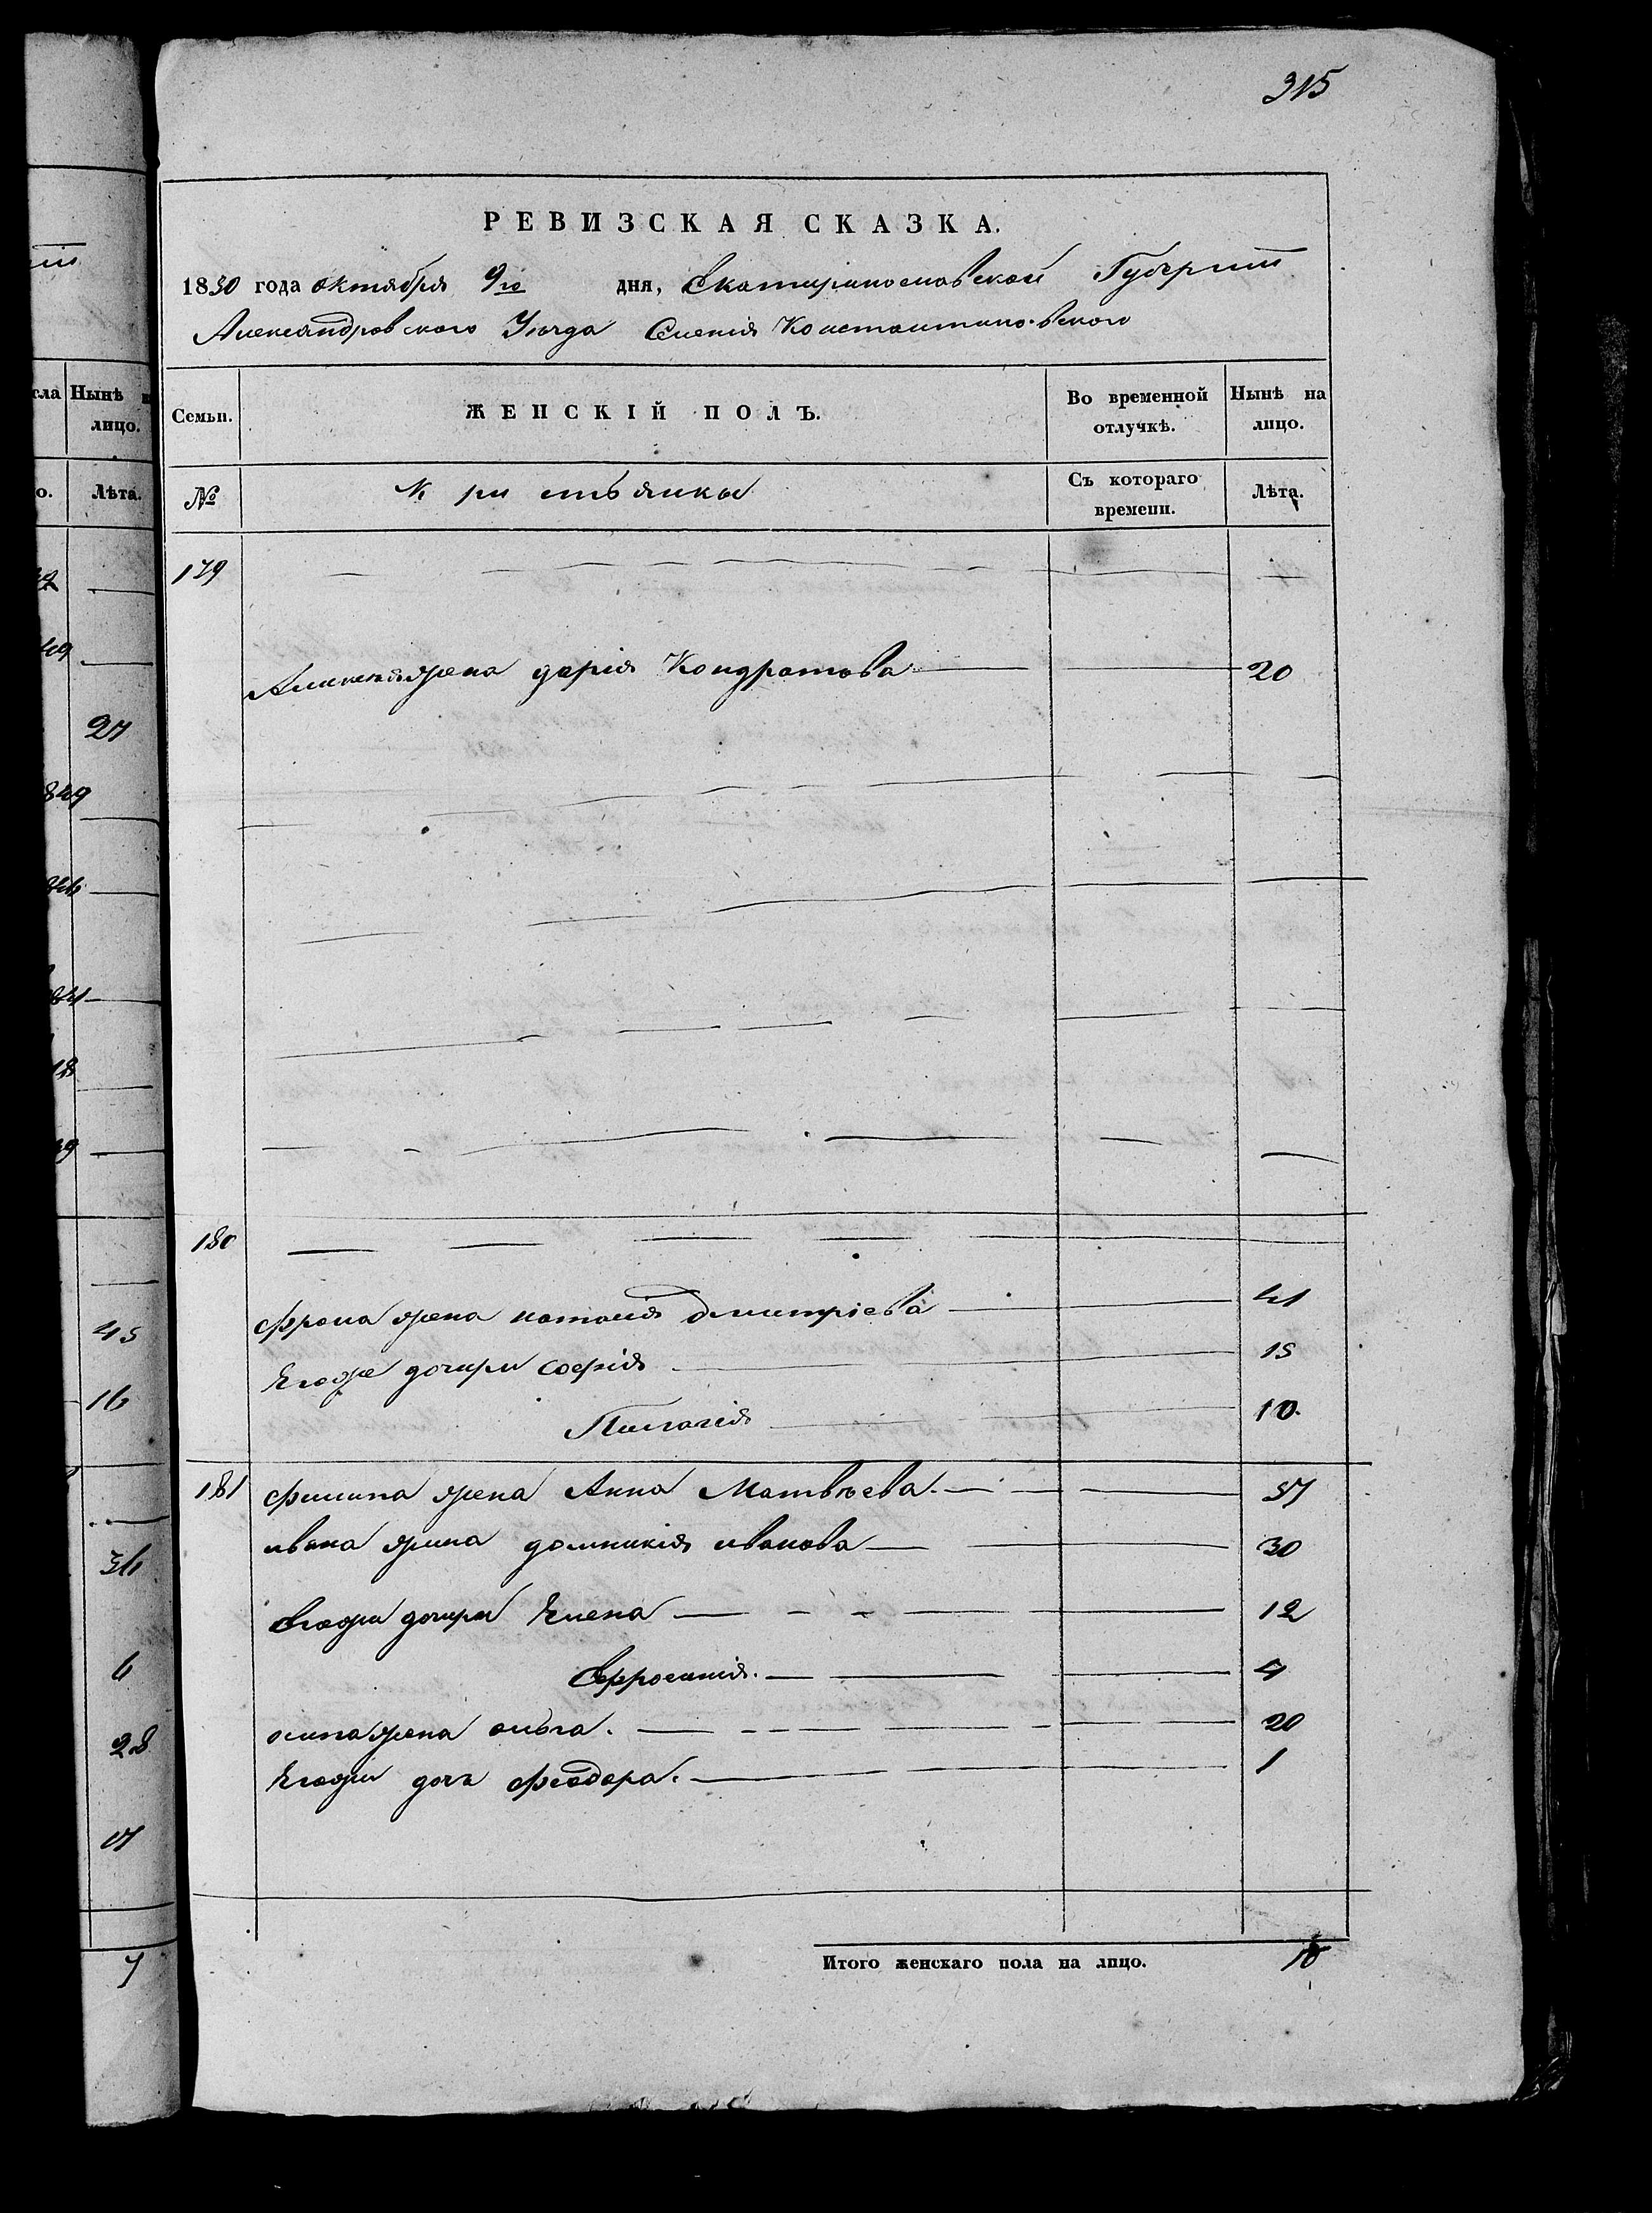 315
РЕВИЗСКАЯ СКАЗКА.
1850 года октября 9го дня, Екатеринославской Губернии
Александровского Уезда Селения Константиновского
Семьи. ЖЕНСКІЙ ПОЛЪ. Во временной отлучкѣ. Нынѣ на лицо.
№ Крестьянки Съ котораго времени. Лѣта.
179
Алексея жена дарія Кондратова 20
180
Фрола жена наталія дмитріева 41
Его же дочери софія 15
Пелагія 10.
181 Филипа жена Анна Матвѣева. 57
ивана жена домникія иванова 30
Его же дочери Елена 12
Ефросинія. 4
осипа жена ольга. 20
Его же дочь Феодора. 1
Итого женскаго пола на лицо. 10
сла Нынѣ на лицо.
о. Лѣта.
27
45
16
36
6
28
17
7